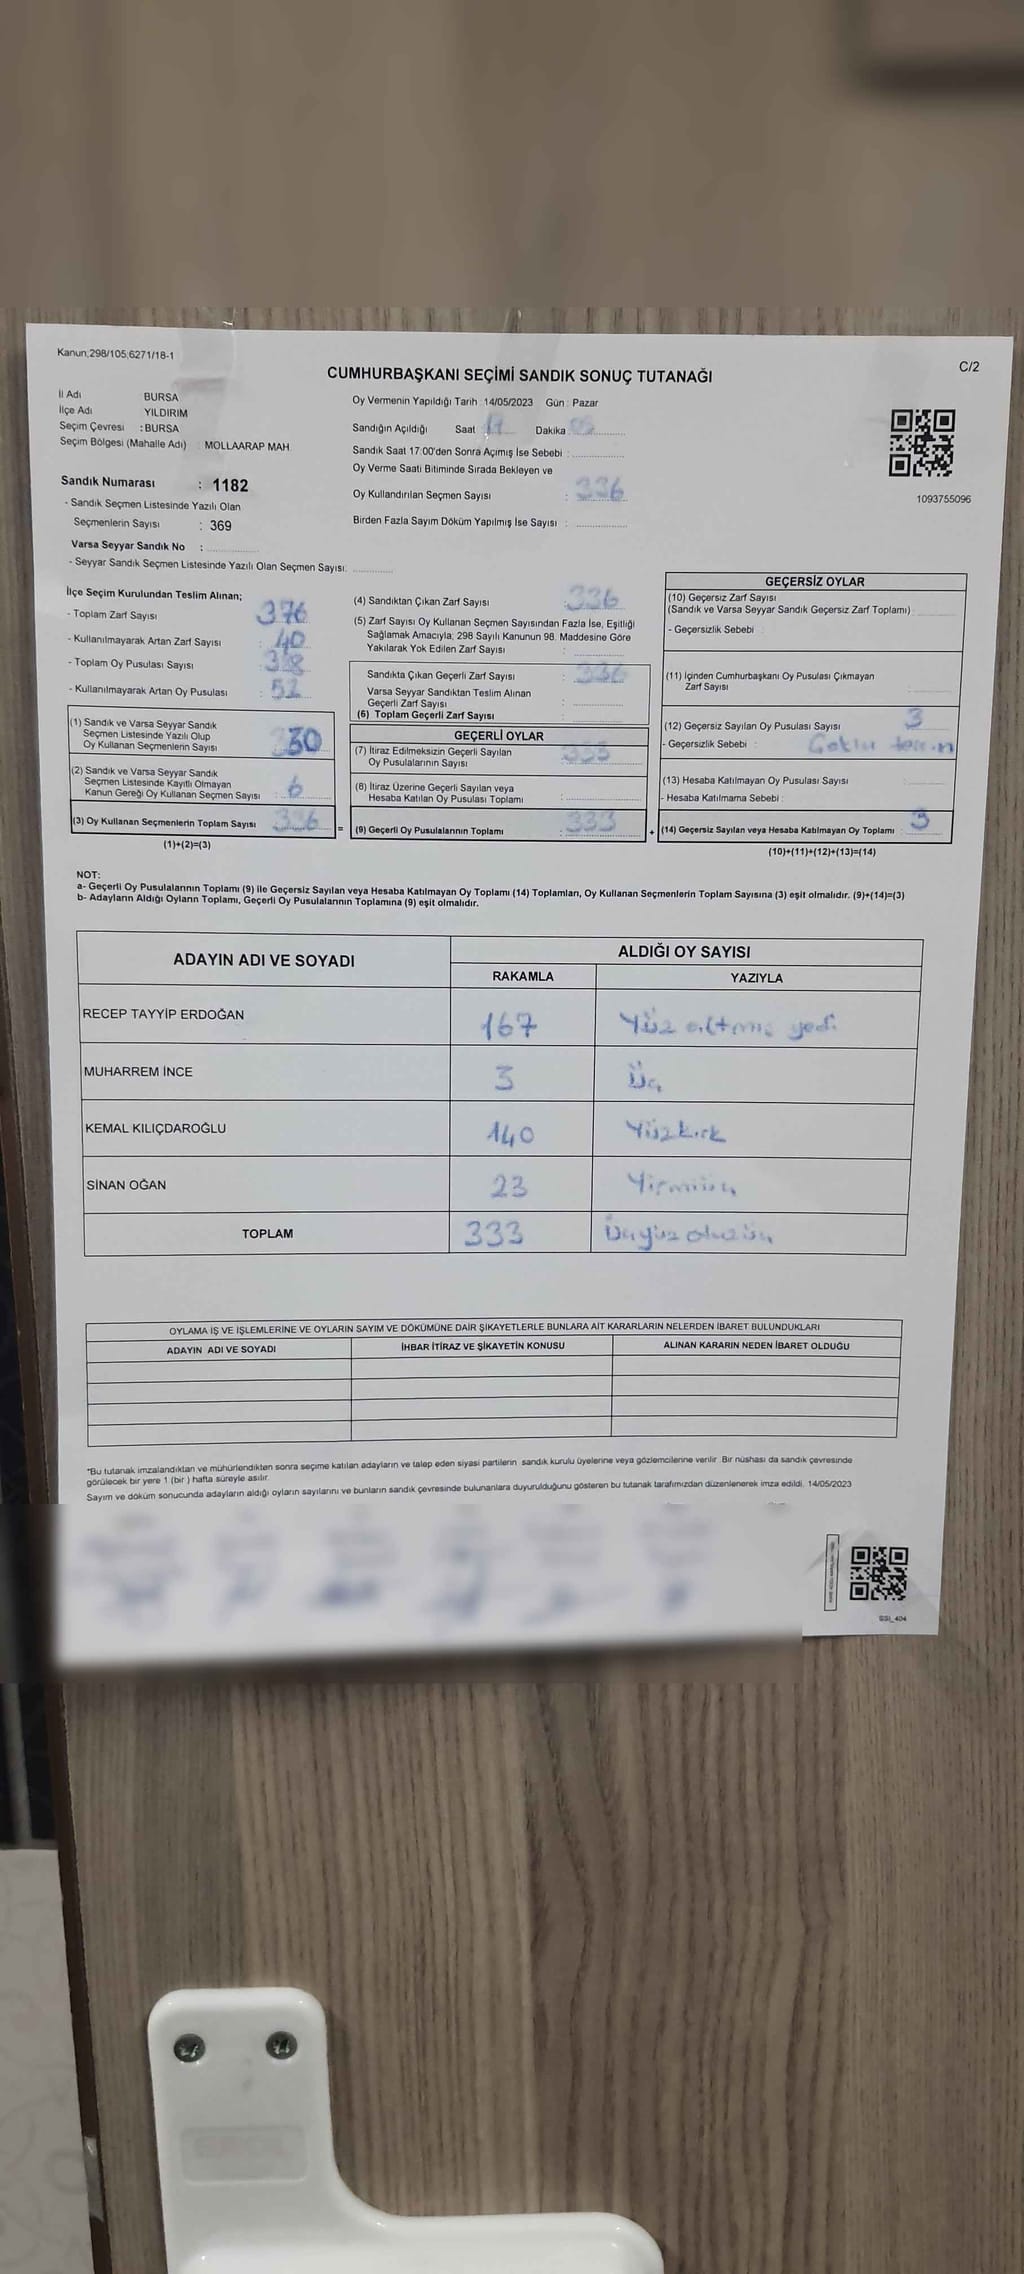 Kanun;298/105,6271/18-1
C/2
CUMHURBAŞKANI SEÇİMİ SANDIK SONUÇ TUTANAĞI
İl Adı BURSA
İlçe Adı YILDIRIM
Seçim Çevresi : BURSA
Seçim Bölgesi (Mahalle Adı) : MOLLAARAP MAH.
Sandık Numarası : 1182
- Sandık Seçmen Listesinde Yazılı Olan
Seçmenlerin Sayısı : 369
Varsa Seyyar Sandık No :
- Seyyar Sandık Seçmen Listesinde Yazılı Olan Seçmen Sayısı:
Oy Vermenin Yapıldığı Tarih 14/05/2023 Gün : Pazar
Sandığın Açıldığı Saat : 17 Dakika
Sandık Saat 17:00'den Sonra Açımış İse Sebebi :
Oy Verme Saati Bitiminde Sırada Bekleyen ve
Oy Kullandırılan Seçmen Sayısı : 336
Birden Fazla Sayım Döküm Yapılmış İse Sayısı :
1093755096
İlçe Seçim Kurulundan Teslim Alınan;
- Toplam Zarf Sayısı : 376
- Kullanılmayarak Artan Zarf Sayısı : 40
- Toplam Oy Pusulası Sayısı :
- Kullanılmayarak Artan Oy Pusulası : 52
(1) Sandık ve Varsa Seyyar Sandık
Seçmen Listesinde Yazılı Olup
Oy Kullanan Seçmenlerin Sayısı : 330
(2) Sandık ve Varsa Seyyar Sandık
Seçmen Listesinde Kayıtlı Olmayan
Kanun Gereği Oy Kullanan Seçmen Sayısı : 6
(3) Oy Kullanan Seçmenlerin Toplam Sayısı : 336
(1)+(2)=(3)
(4) Sandıktan Çıkan Zarf Sayısı : 336
(5) Zarf Sayısı Oy Kullanan Seçmen Sayısından Fazla İse, Eşitliği
Sağlamak Amacıyla; 298 Sayılı Kanunun 98. Maddesine Göre
Yakılarak Yok Edilen Zarf Sayısı :
Sandıkta Çıkan Geçerli Zarf Sayısı : 336
Varsa Seyyar Sandıktan Teslim Alınan
Geçerli Zarf Sayısı :
(6) Toplam Geçerli Zarf Sayısı :
GEÇERLİ OYLAR
(7) İtiraz Edilmeksizin Geçerli Sayılan
Oy Pusulalarının Sayısı : 333
(8) İtiraz Üzerine Geçerli Sayılan veya
Hesaba Katılan Oy Pusulası Toplamı :
= (9) Geçerli Oy Pusulalarının Toplamı : 333
GEÇERSİZ OYLAR
(10) Geçersiz Zarf Sayısı
(Sandık ve Varsa Seyyar Sandık Geçersiz Zarf Toplamı) :
- Geçersizlik Sebebi :
(11) İçinden Cumhurbaşkanı Oy Pusulası Çıkmayan
Zarf Sayısı :
(12) Geçersiz Sayılan Oy Pusulası Sayısı : 3
- Geçersizlik Sebebi :
(13) Hesaba Katılmayan Oy Pusulası Sayısı :
- Hesaba Katılmama Sebebi :
+ (14) Geçersiz Sayılan veya Hesaba Katılmayan Oy Toplamı : 3
(10)+(11)+(12)+(13)=(14)
NOT:
a- Geçerli Oy Pusulalarının Toplamı (9) ile Geçersiz Sayılan veya Hesaba Katılmayan Oy Toplamı (14) Toplamları, Oy Kullanan Seçmenlerin Toplam Sayısına (3) eşit olmalıdır. (9)+(14)=(3)
b- Adayların Aldığı Oyların Toplamı, Geçerli Oy Pusulalarının Toplamına (9) eşit olmalıdır.
ADAYIN ADI VE SOYADI ALDIĞI OY SAYISI
RAKAMLA YAZIYLA
RECEP TAYYİP ERDOĞAN 167 Yüz altmış yedi
MUHARREM İNCE 3 Üç
KEMAL KILIÇDAROĞLU 140 Yüzkırk
SİNAN OĞAN 23 Yirmiüç
TOPLAM 333 Üçyüz otuzüç
OYLAMA İŞ VE İŞLEMLERİNE VE OYLARIN SAYIM VE DÖKÜMÜNE DAİR ŞİKAYETLERLE BUNLARA AİT KARARLARIN NELERDEN İBARET BULUNDUKLARI
ADAYIN ADI VE SOYADI İHBAR İTİRAZ VE ŞİKAYETİN KONUSU ALINAN KARARIN NEDEN İBARET OLDUĞU
*Bu tutanak imzalandıktan ve mühürlendikten sonra seçime katılan adayların ve talep eden siyasi partilerin sandık kurulu üyelerine veya gözlemcilerine verilir. Bir nüshası da sandık çevresinde
görülecek bir yere 1 (bir) hafta süreyle asılır.
Sayım ve döküm sonucunda adayların aldığı oyların sayılarını ve bunların sandık çevresinde bulunanlara duyurulduğunu gösteren bu tutanak tarafımızdan düzenlenerek imza edildi. 14/05/2023
SSI_404